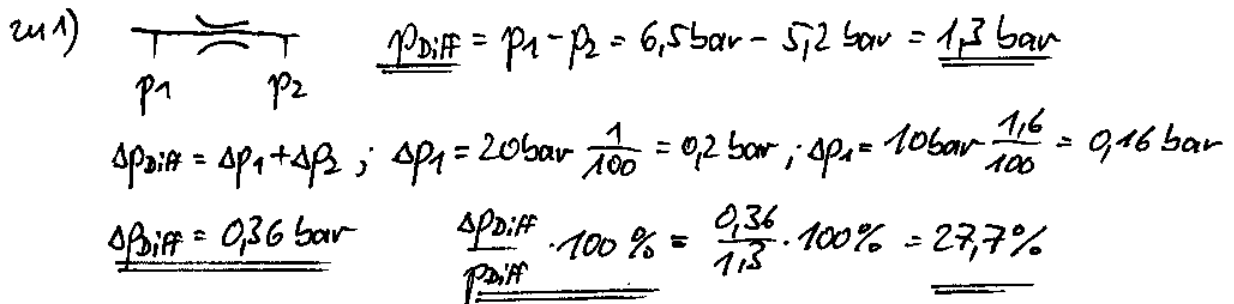 zu 1) pDiff = p1 - p2 = 6,5 bar - 5,2 bar = 1,3 bar
p1 p2
ΔpDiff = Δp1 + Δp2 ; Δp1 = 20 bar 1/100 = 0,2 bar ; Δp1 = 10 bar 1,6/100 = 0,16 bar
ΔpDiff = 0,36 bar ΔpDiff/pDiff · 100 % = 0,36/1,3 · 100 % = 27,7 %